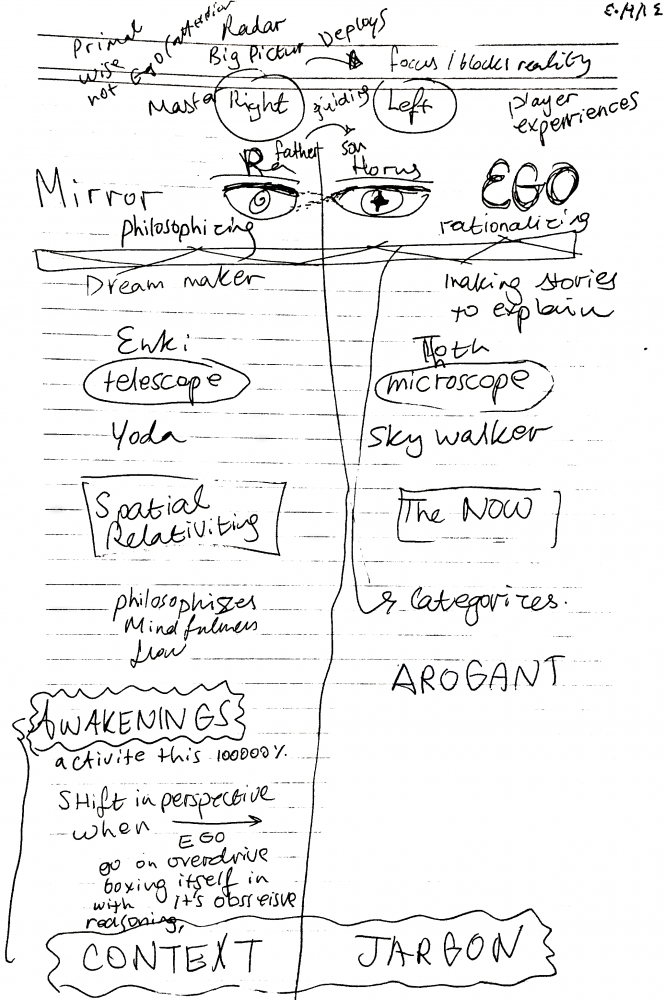 Primal
wise
not EGO/attention
Radar
Big Pictur
Deploys
focus/blocks reality
Master
Right
guiding
Left
player
experiences
Ra
father
son
Horus
Mirror
EGO
philosophizing
rationalizing
Dream maker
making stories
to explain
Enki
Toth
telescope
microscope
Yoda
Sky walker
Spatial
Relativiting
The NOW
philosophiszes
Mindfulness
flow
Categorizes.
AROGANT
AWAKENINGS
activite this 100000%.
SHift in perspective
when
EGO
go on overdrive
boxing itself in
with it's obsseisve
reasoning,
CONTEXT
JARGON